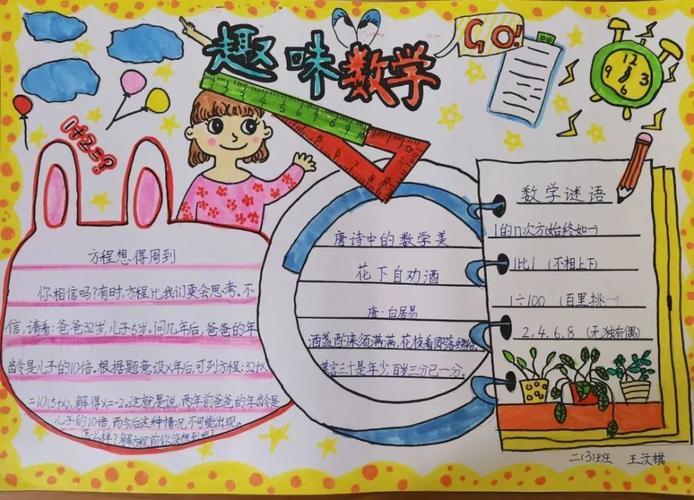 趣味数学
GO!
1+2=?
方程想得周到
你相信吗?有时,方程比我们更会思考。不
信,请看:爸爸32岁,儿子5岁。问几年后,爸爸的年
龄是儿子的10倍.根据题意设X年后,可列方程:32+x
=10(5+x),解得x=-2.这就是说,两年前爸爸的年龄是
儿子的10倍,而今后这种情况不可能出现。
怎么样?解方程前你没想到吧?
唐诗中的数学美
花下自劝酒
唐:白居易
酒盏酌来须满满,花枝看即落纷纷。
莫言三十是年少,百岁三分已一分。
数学谜语
1的n次方(始终如一)
1比1 (不相上下)
1÷100 (百里挑一)
2,4,6,8 (无独有偶)
二(3)班 王汶棋